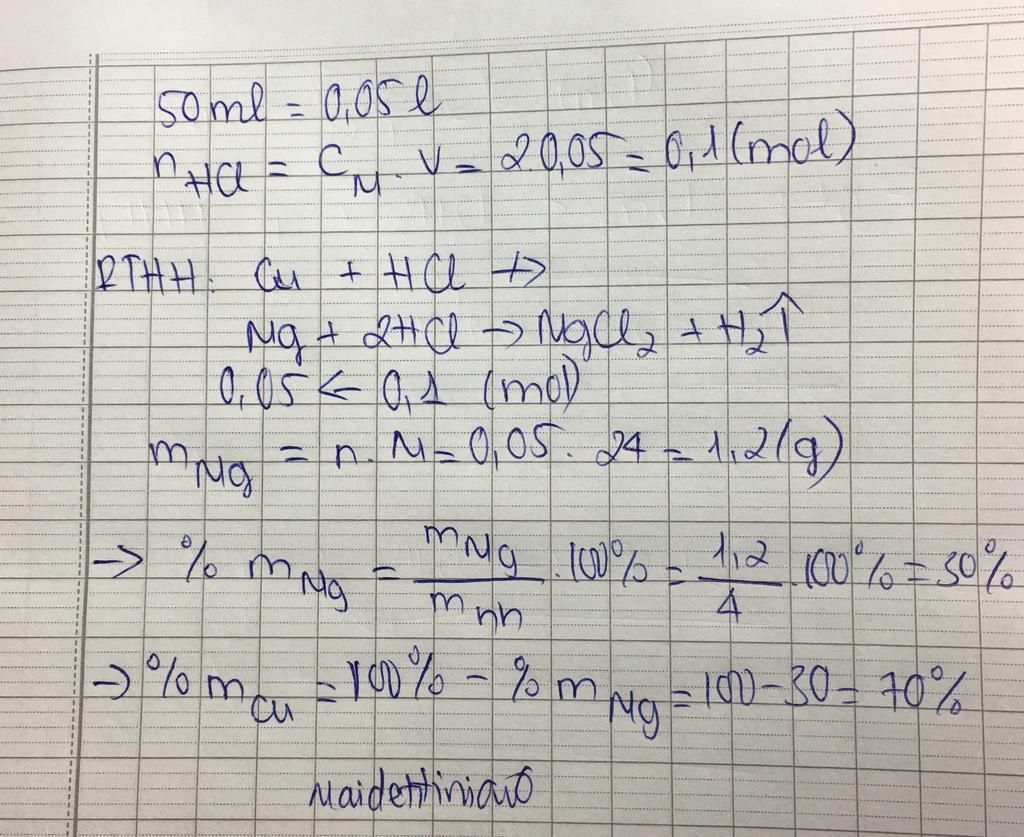 50ml = 0,05 l
n HCl = C M . V = 2.0,05 = 0,1 (mol)
PTHH: Cu + HCl ↛
Mg + 2HCl → MgCl2 + H2↑
0,05 ← 0,1 (mol)
m Mg = n. M = 0,05. 24 = 1,2 (g)
→ % m Mg = m Mg / m hh . 100% = 1,2 / 4 . 100% = 30%
→ % m Cu = 100% - % m Mg = 100 - 30 = 70%